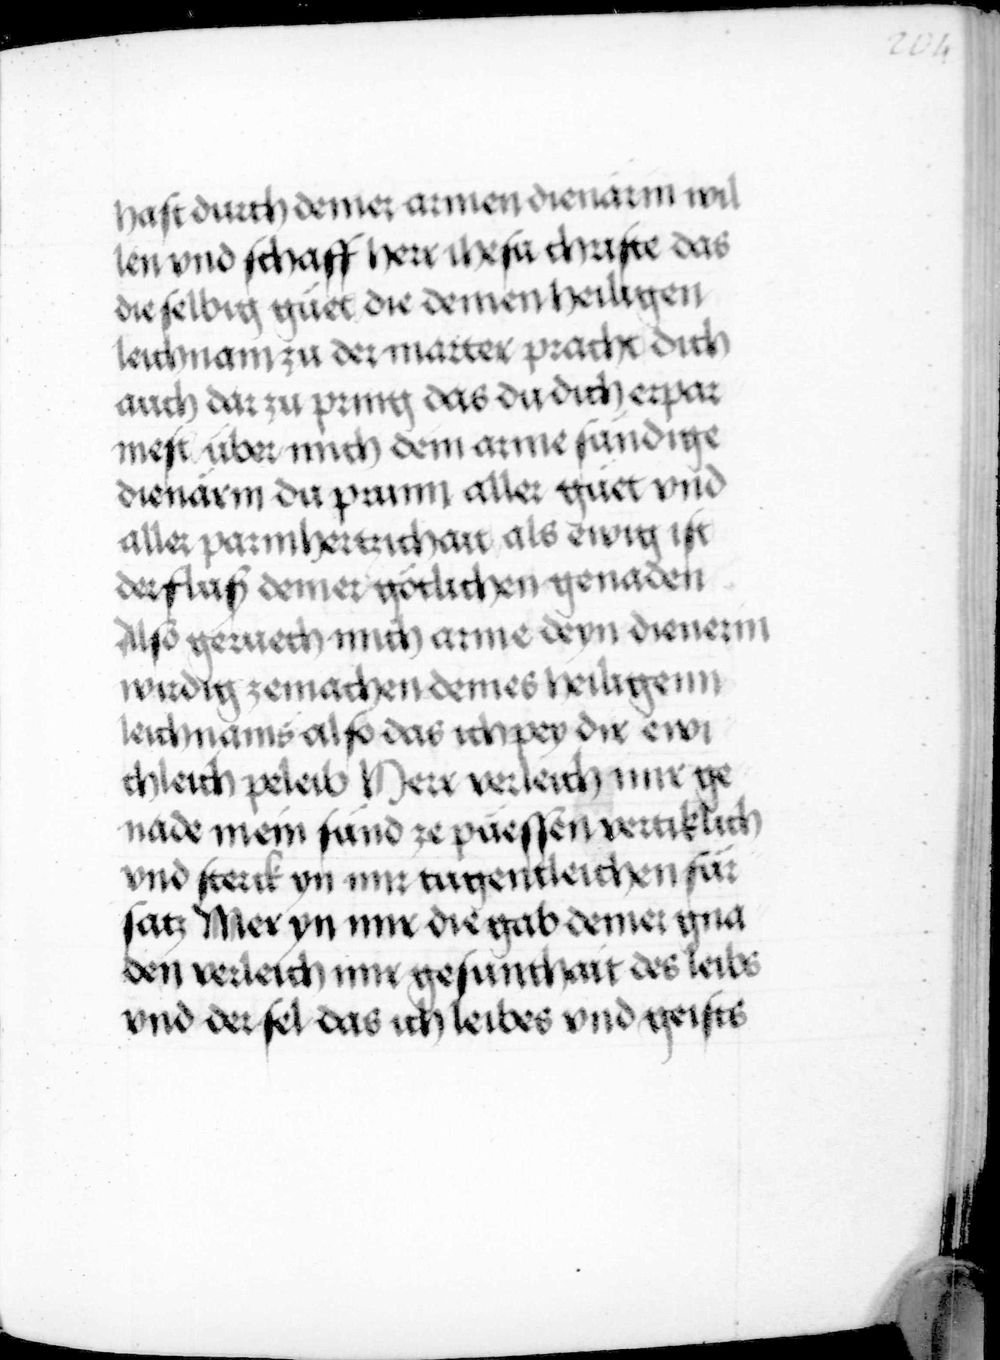 204
hast durch deiner armen dienärin wil
len vnd schaff herr ihesu christe das
die selbig güet die deinen heiligen
leichnam zu der marter pracht dich
auch dar zu pring das du dich erpar
mest über mich dein arme sündige
dienärin du prunn aller güet vnd
aller parmhertzichait als ewig ist
der fluß deiner götlichen genaden
Also geruech mich arme deyn dienerin
wirdig ze machen deines heiligenn
leichnams also das ich pey dir ewi
chleich peleib Herr verleich mir ge
nade mein sünd ze püessen vertiklich
vnd sterck yn mir tugentleichen für
satz Mer yn mir die gab deiner gna
den verleich mir gesunthait des leibs
vnd der sel das ich leibes vnd geists